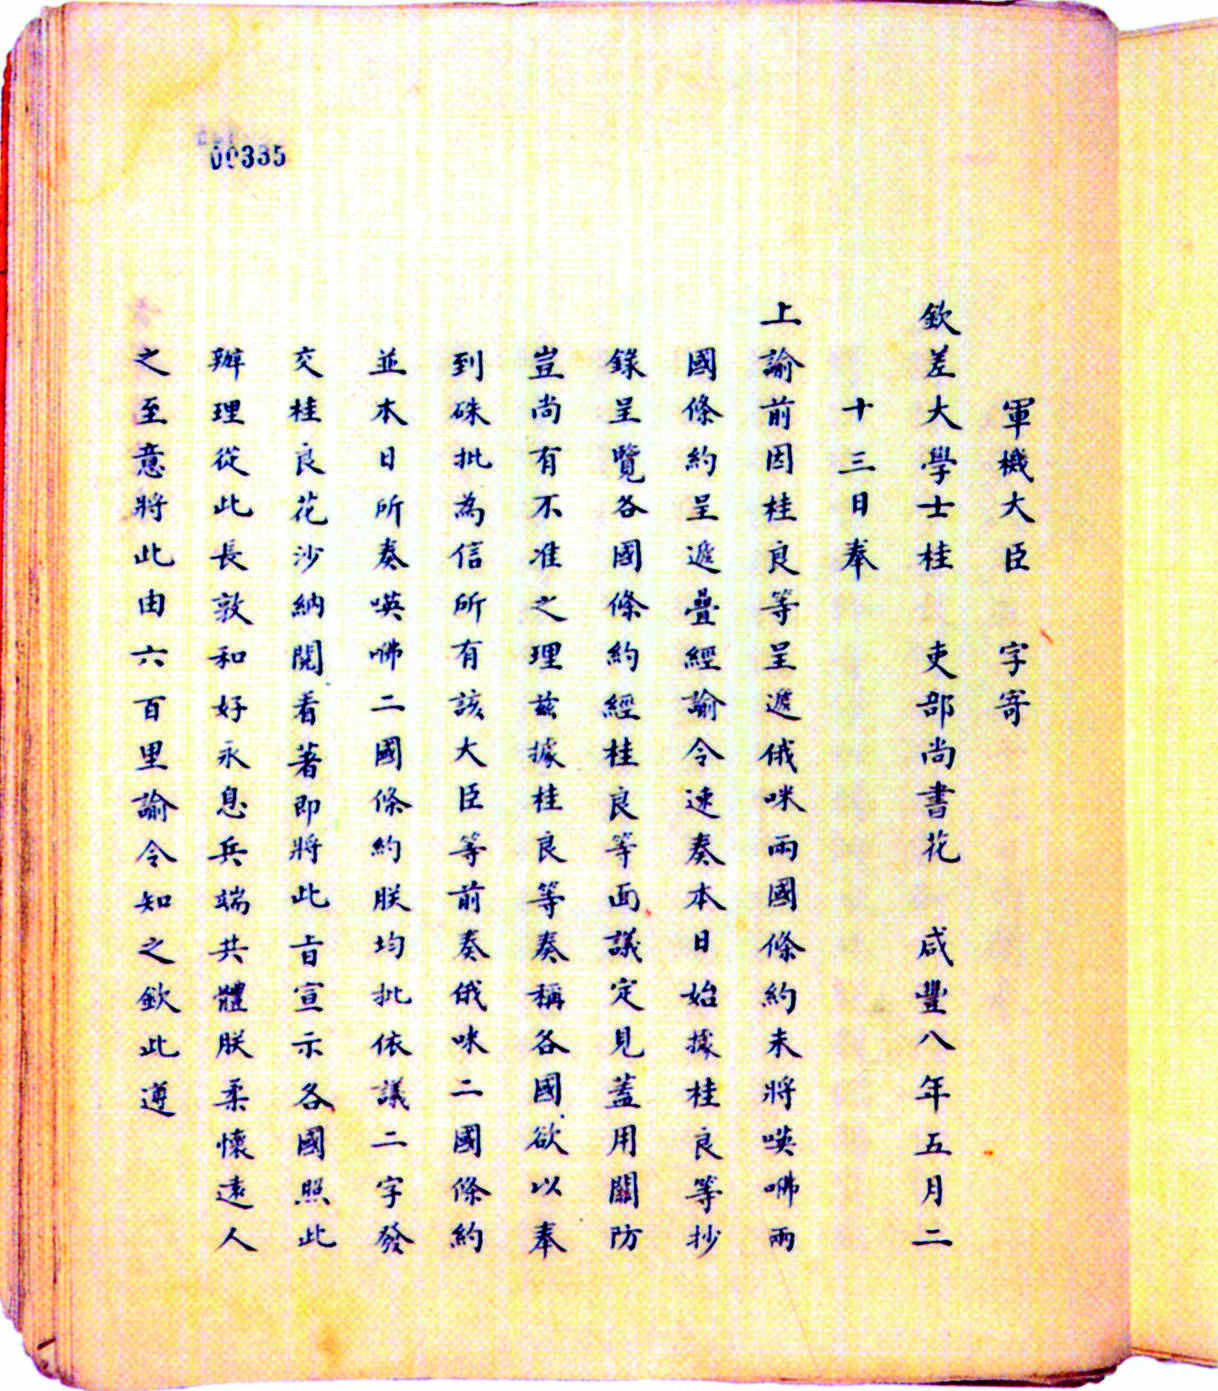 00335
軍機大臣 字寄
欽差大學士桂 吏部尚書花 咸豐八年五月二
十三日奉
上諭前因桂良等呈遞俄咪兩國條約未將𠸄咈兩
國條約呈遞疊經諭令速奏本日始據桂良等抄
錄呈覽各國條約經桂良等面議定見蓋用關防
豈尚有不准之理茲據桂良等奏稱各國欲以奉
到硃批為信所有該大臣等前奏俄咪二國條約
並本日所奏𠸄咈二國條約朕均批依議二字發
交桂良花沙納閱看著即將此旨宣示各國照此
辦理從此長敦和好永息兵端共體朕柔懷遠人
之至意將此由六百里諭令知之欽此遵